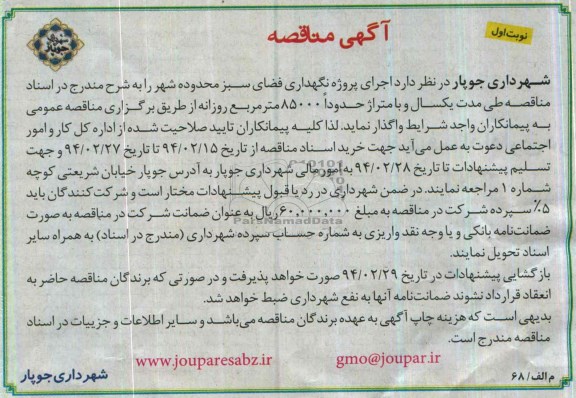 نوبت اول
آگهی مناقصه
شهرداری جوپار
شهرداری جوپار در نظر دارد اجرای پروژه نگهداری فضای سبز محدوده شهر را به شرح مندرج در اسناد
مناقصه طی مدت یکسال و با متراژ حدودا ۸۵۰۰۰ مترمربع روزانه از طریق برگزاری مناقصه عمومی
به پیمانکاران واجد شرایط واگذار نماید. لذا کلیه پیمانکاران تایید صلاحیت شده از اداره کل کار و امور
اجتماعی دعوت به عمل می‌آید جهت خرید اسناد مناقصه از تاریخ ۹۴/۰۲/۱۵ تا تاریخ ۹۴/۰۲/۲۷ و جهت
تسلیم پیشنهادات تا تاریخ ۹۴/۰۲/۲۸ به امور مالی شهرداری جوپار به آدرس جوپار خیابان شریعتی کوچه
شماره ۱ مراجعه نمایند. در ضمن شهرداری در رد یا قبول پیشنهادات مختار است و شرکت کنندگان باید
۵٪ سپرده شرکت در مناقصه به مبلغ ۶۰,۰۰۰,۰۰۰ ریال به عنوان ضمانت شرکت در مناقصه به صورت
ضمانت‌نامه بانکی و یا وجه نقد واریزی به شماره حساب سپرده شهرداری (مندرج در اسناد) به همراه سایر
اسناد تحویل نمایند.
بازگشایی پیشنهادات در تاریخ ۹۴/۰۲/۲۹ صورت خواهد پذیرفت و در صورتی که برندگان مناقصه حاضر به
انعقاد قرارداد نشوند ضمانت‌نامه آنها به نفع شهرداری ضبط خواهد شد.
بدیهی است که هزینه چاپ آگهی به عهده برندگان مناقصه می‌باشد و سایر اطلاعات و جزییات در اسناد
مناقصه مندرج است.
gmo@joupar.ir www.jouparesabz.ir
م الف/ ۶۸ شهرداری جوپار
ParsNamadData